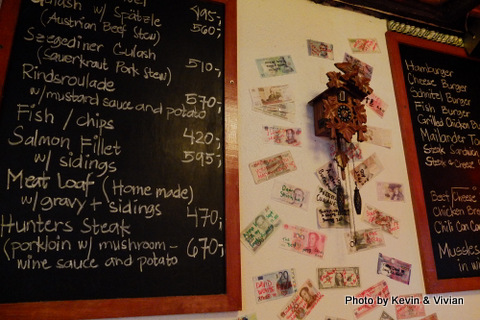 Goulash w/ Spätzle 495;
(Austrian Beef Stew) 560;
Szegediner Gulash
(Sauerkraut Pork Stew) 510;
Rindsroulade
w/ mustard sauce and potato 570;
Fish / chips 420;
Salmon Fillet 595;
w/ sidings
Meat Loaf (Home made)
w/ gravy + sidings 470;
Hunters Steak
(porkloin w/ mushroom- 670;
wine sauce and potato
Hamburger
Cheese Burger
Schnitzl Burger
Fish Burger
Grilled Chicken Bu
Mailander To
Steak Sandwi
Steak & Cheese
Best Cheese
Chicken Brea
Chili Con Ca
Mussels
in w
20
Photo by Kevin & Vivian